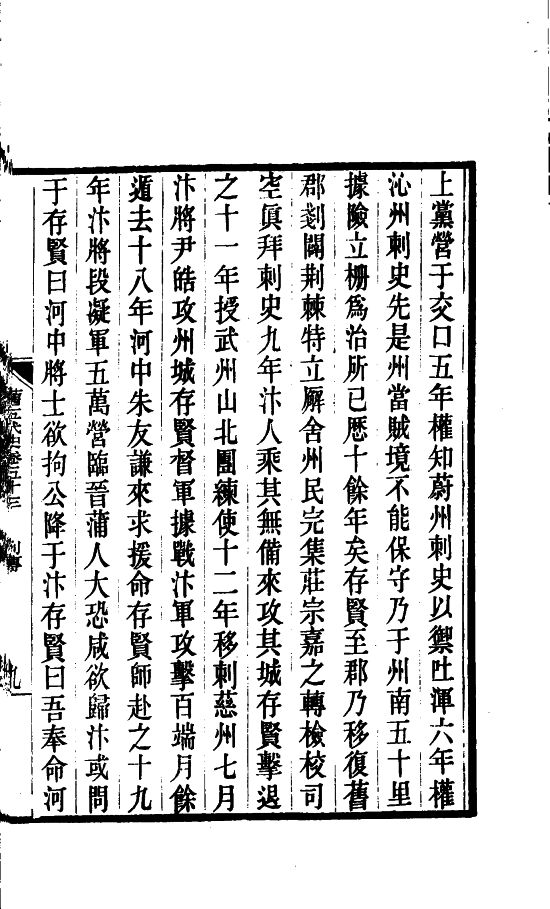 上黨營于交口五年權知蔚州刺史以禦吐渾六年權
沁州刺史先是州當賊境不能保守乃于州南五十里
據險立柵爲治所已歷十餘年矣存賢至郡乃移復舊
郡剗闢荆棘特立廨舍州民完集莊宗嘉之轉檢校司
空眞拜刺史九年汴人乘其無備來攻其城存賢擊退
之十一年授武州山北團練使十二年移刺慈州七月
汴將尹皓攻州城存賢督軍據戰汴軍攻擊百端月餘
遁去十八年河中朱友謙來求援命存賢師赴之十九
年汴將段凝軍五萬營臨晉蒲人大恐咸欲歸汴或問
于存賢曰河中將士欲拘公降于汴存賢曰吾奉命河
舊五代史卷五十三 列傳 九